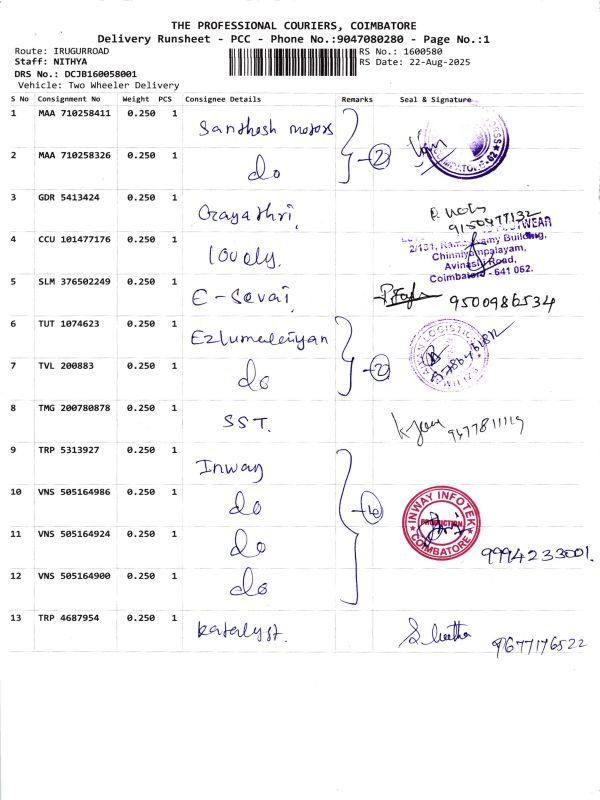 THE PROFESSIONAL COURIERS, COIMBATORE
Delivery Runsheet - PCC - Phone No.:9047080280 - Page No.:1
Route: IRUGURROAD
Staff: NITHYA
DRS No.: DCJB160058001
Vehicle: Two Wheeler Delivery
RS No.: 1600580
RS Date: 22-Aug-2025
S No Consignment No Weight PCS Consignee Details Remarks Seal & Signature
1 MAA 710258411 0.250 1 Santhosh motors
2 MAA 710258326 0.250 1 do 2
3 GDR 5413424 0.250 1 Gayathri 9150977132
4 CCU 101477176 0.250 1 lovely.
FOOTWEAR
2/131, Ramaswamy Building,
Chinniyampalayam,
Avinashi Road,
Coimbatore - 641 062.
5 SLM 376502249 0.250 1 E-Sevai 9500986534
6 TUT 1074623 0.250 1 Ezhumalaiyan
7 TVL 200883 0.250 1 do 2
8 TMG 200780878 0.250 1 SST. 9677811119
9 TRP 5313927 0.250 1 Inway
10 VNS 505164986 0.250 1 do
INWAY INFOTEK
PRODUCTION
COIMBATORE
11 VNS 505164924 0.250 1 do 9994233001.
12 VNS 505164900 0.250 1 do
13 TRP 4687954 0.250 1 katalyst. 9677176522